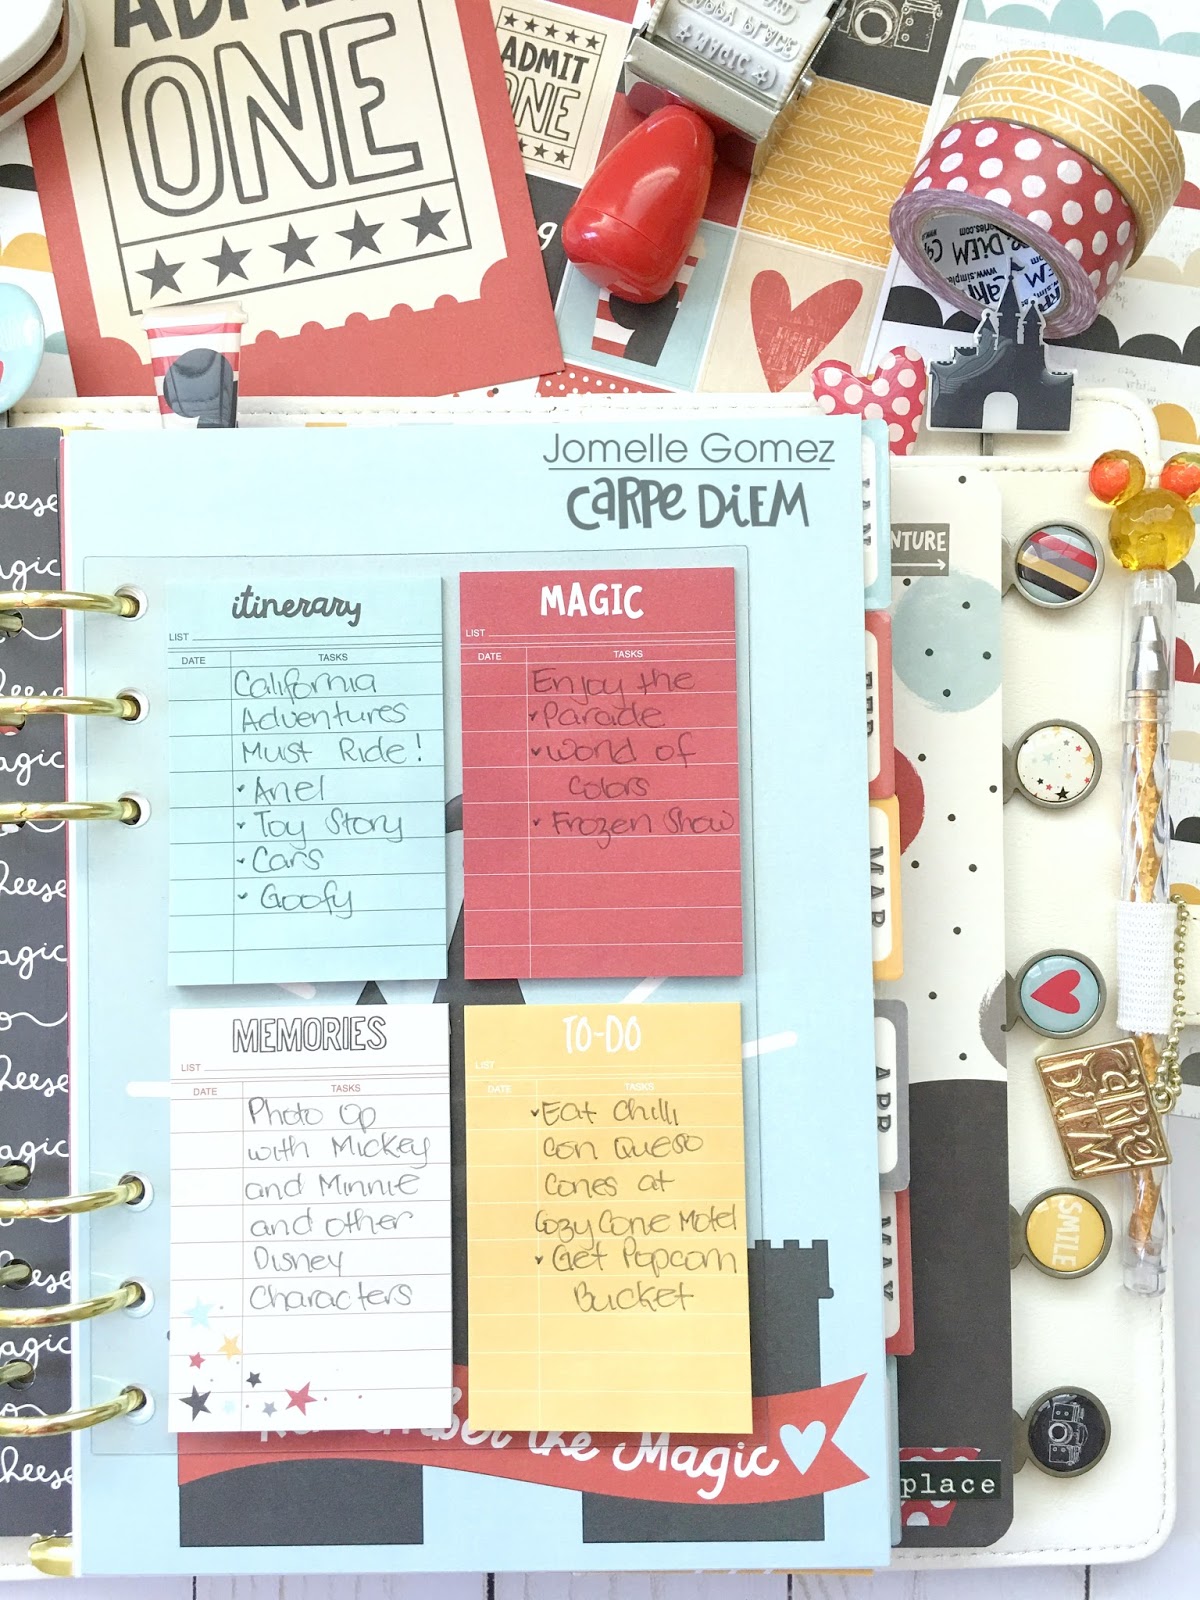 ADMIT
ONE
ADMIT
ONE
MAGIC
Jomelle Gomez
CARPE DIEM
itinerary
LIST
DATE TASKS
California
Adventures
Must Ride!
Ariel
Toy Story
Cars
Goofy
MAGIC
LIST
DATE TASKS
Enjoy the
Parade
World of
Colors
Frozen Show
MEMORIES
LIST
DATE TASKS
Photo Op
with Mickey
and Minnie
and other
Disney
Characters
TO-DO
LIST
DATE TASKS
Eat Chilli
Con Queso
Cones at
Cozy Cone Motel
Get Popcorn
Bucket
the Magic
JAN
FEB
MAR
APR
MAY
NTURE
CARPE
DIEM
SMILE
place
cheese
magic
cheese
magic
cheese
magic
cheese